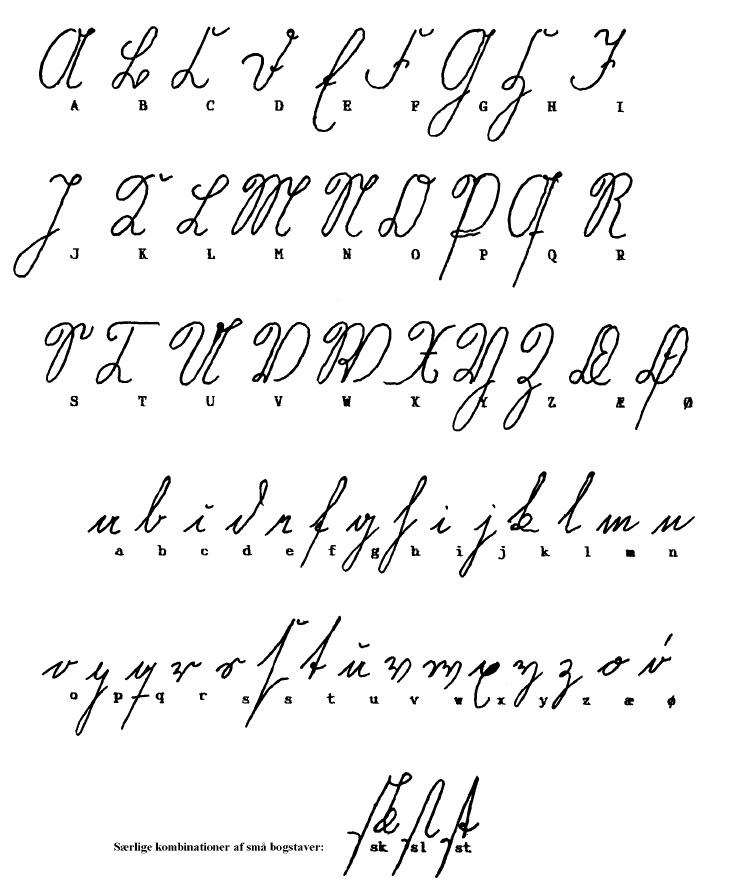 A B C D E F G H I
J K L M N O P Q R
S T U V W X Y Z Æ Ø
a b c d e f g h i j k l m n
o p q r s s t u v w x y z æ ø
Særlige kombinationer af små bogstaver: sk sl st